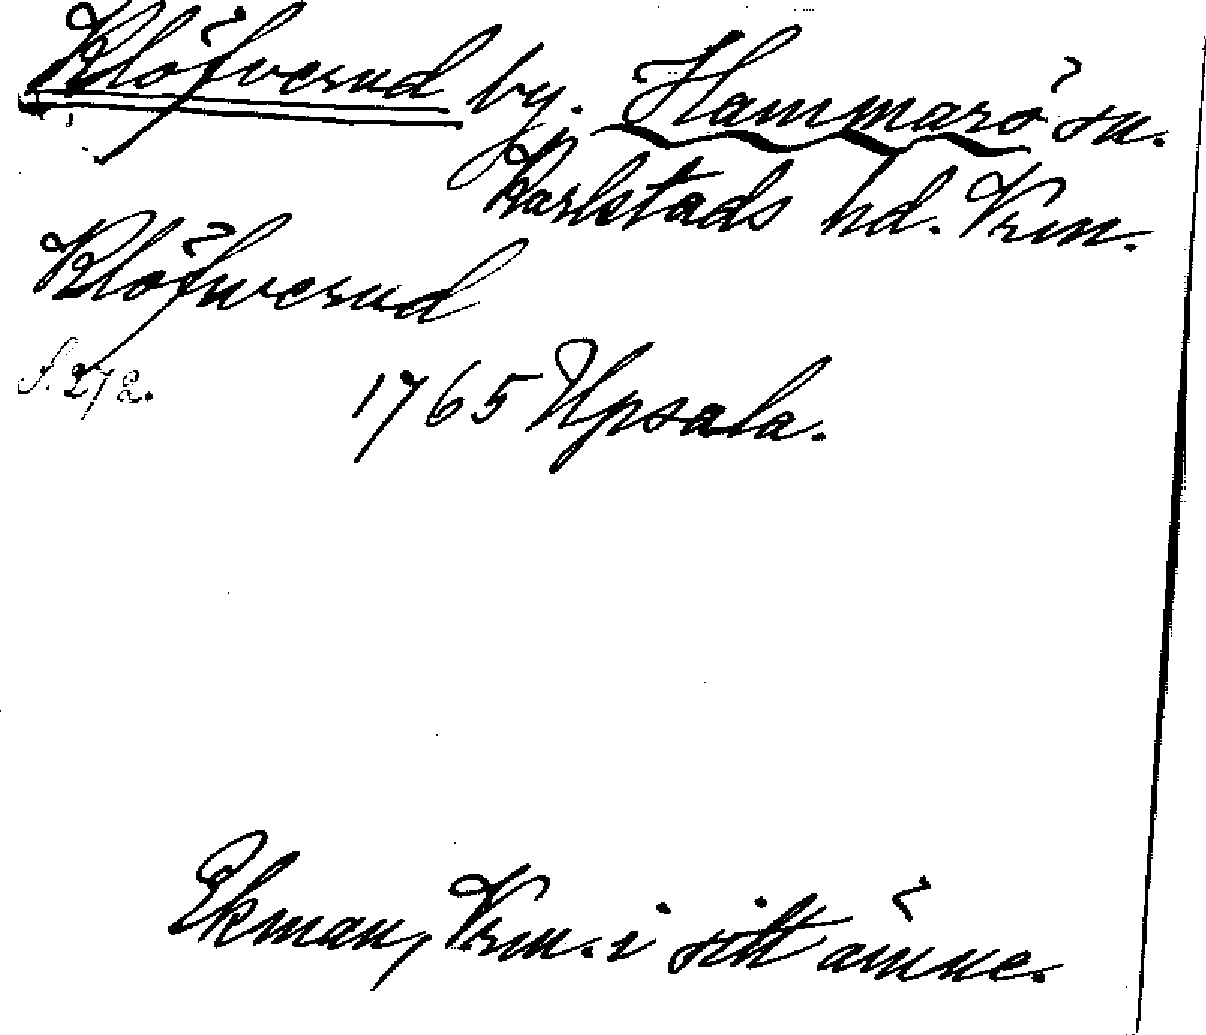 Klöfverud by. Hammarö sn.
Karlstads hd. Vrm.
Klöfwerud
S. 272.
1765 Upsala.
Ekman, Vrm. i sitt ämne.